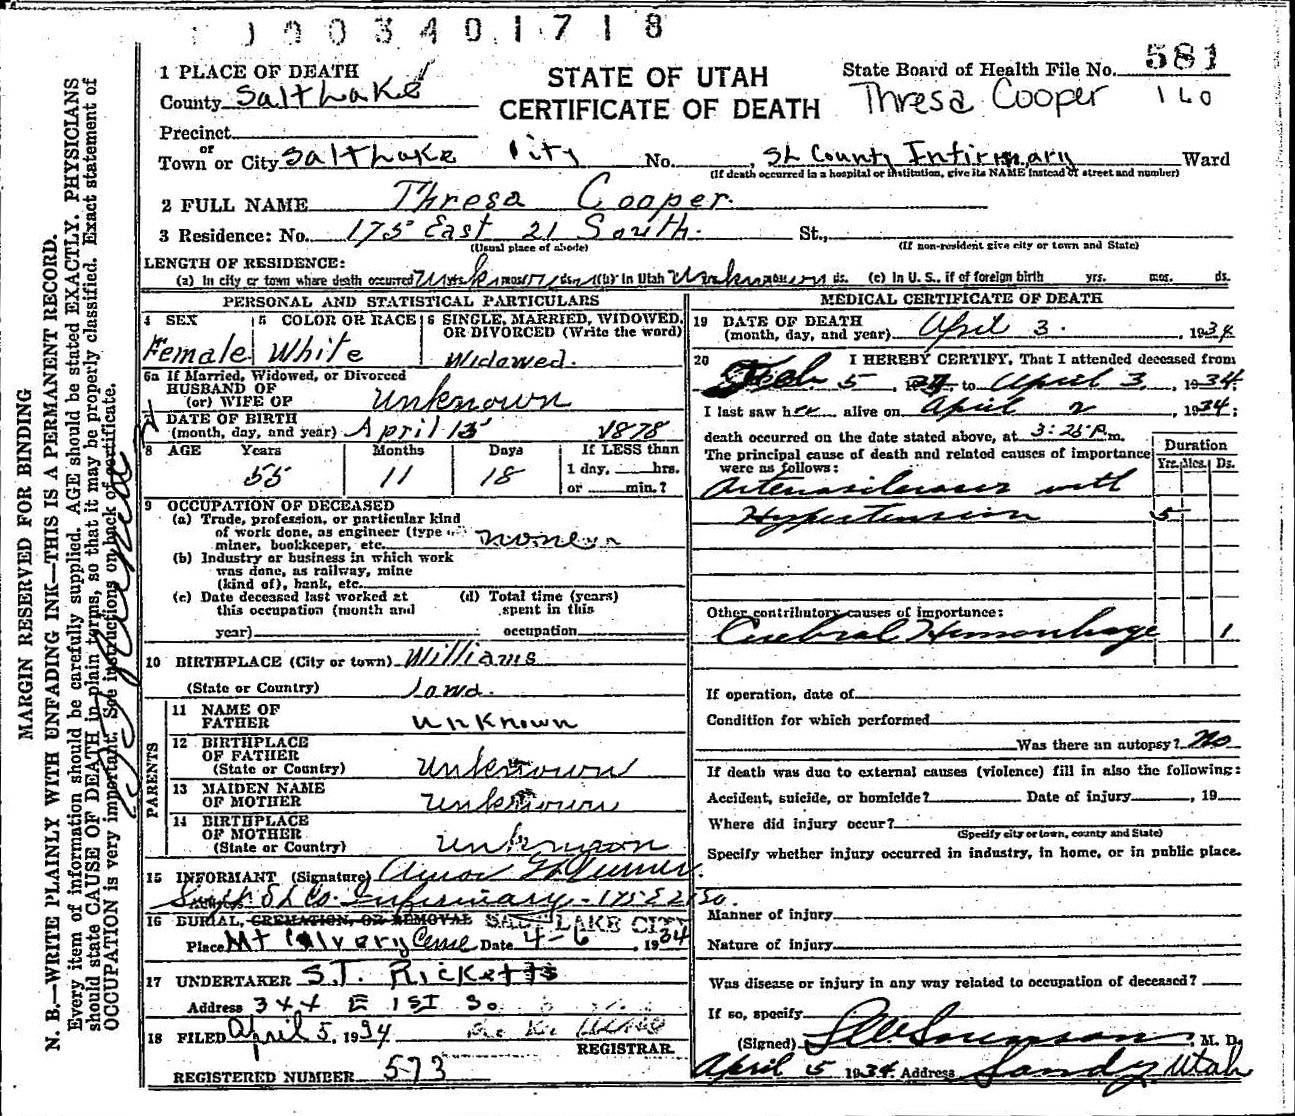 1 0 0 3 4 0 1 7 1 8
1 PLACE OF DEATH
County Salt Lake
Precinct
or
Town or City Salt Lake City No. SL County Infirmary Ward
(If death occurred in a hospital or institution, give its NAME instead of street and number)
STATE OF UTAH
CERTIFICATE OF DEATH
State Board of Health File No. 581
Thresa Cooper 160
2 FULL NAME Thresa Cooper.
3 Residence: No. 175 East 21 South. St.,
(Usual place of abode) (If non-resident give city or town and State)
LENGTH OF RESIDENCE:
(a) In city or town where death occurred Unknown (b) In Utah Unknown ds. (c) In U. S., if of foreign birth yrs. mos. ds.
PERSONAL AND STATISTICAL PARTICULARS
4 SEX
Female
5 COLOR OR RACE
White
6 SINGLE, MARRIED, WIDOWED, OR DIVORCED (Write the word)
Widowed.
6a If Married, Widowed, or Divorced
HUSBAND OF
(or) WIFE OF Unknown
7 DATE OF BIRTH
(month, day, and year) April 15 1878
8 AGE Years Months Days If LESS than
55 11 18 1 day, hrs.
or min.?
9 OCCUPATION OF DECEASED
(a) Trade, profession, or particular kind
of work done, as engineer (type
miner, bookkeeper, etc.
(b) Industry or business in which work
was done, as railway, mine
(kind of), bank, etc.
(c) Date deceased last worked at
this occupation (month and
year)
(d) Total time (years)
spent in this
occupation
10 BIRTHPLACE (City or town) Williams
(State or Country) Iowa.
PARENTS
11 NAME OF
FATHER Unknown
12 BIRTHPLACE
OF FATHER
(State or Country) Unknown
13 MAIDEN NAME
OF MOTHER Unknown
14 BIRTHPLACE
OF MOTHER
(State or Country) Unknown
15 INFORMANT (Signature)
S L Co. Infirmary - 175 E 21 So.
16 BURIAL, CREMATION, OR REMOVAL SALT LAKE CITY
Place Mt Calvery Ceme Date 4-6, 1934
17 UNDERTAKER S.T. Ricketts
Address 344 E 1st So.
18 FILED April 5, 1934
REGISTRAR.
REGISTERED NUMBER 573
MEDICAL CERTIFICATE OF DEATH
19 DATE OF DEATH
(month, day, and year) April 3. 1934
20 I HEREBY CERTIFY, That I attended deceased from
Feb 5, to April 3, 1934.
I last saw her alive on April 2, 1934;
death occurred on the date stated above, at 3:25 P.m.
The principal cause of death and related causes of importance
were as follows:
Duration
Yrs. Mos. Ds.
Arteriosclerosis with
Hypertension 5
Other contributory causes of importance:
Cerebral Hemorrhage 1
If operation, date of
Condition for which performed
Was there an autopsy? No
If death was due to external causes (violence) fill in also the following:
Accident, suicide, or homicide? Date of injury, 19
Where did injury occur?
(Specify city or town, county and State)
Specify whether injury occurred in industry, in home, or in public place.
Manner of injury
Nature of injury
Was disease or injury in any way related to occupation of deceased?
If so, specify
(Signed) Sorenson, M. D.
April 5 1934. Address Sandy Utah
MARGIN RESERVED FOR BINDING
N. B.—WRITE PLAINLY WITH UNFADING INK—THIS IS A PERMANENT RECORD.
Every item of information should be carefully supplied. AGE should be stated EXACTLY. PHYSICIANS
should state CAUSE OF DEATH in plain terms, so that it may be properly classified. Exact statement of
OCCUPATION is very important. See instructions on back of certificate.